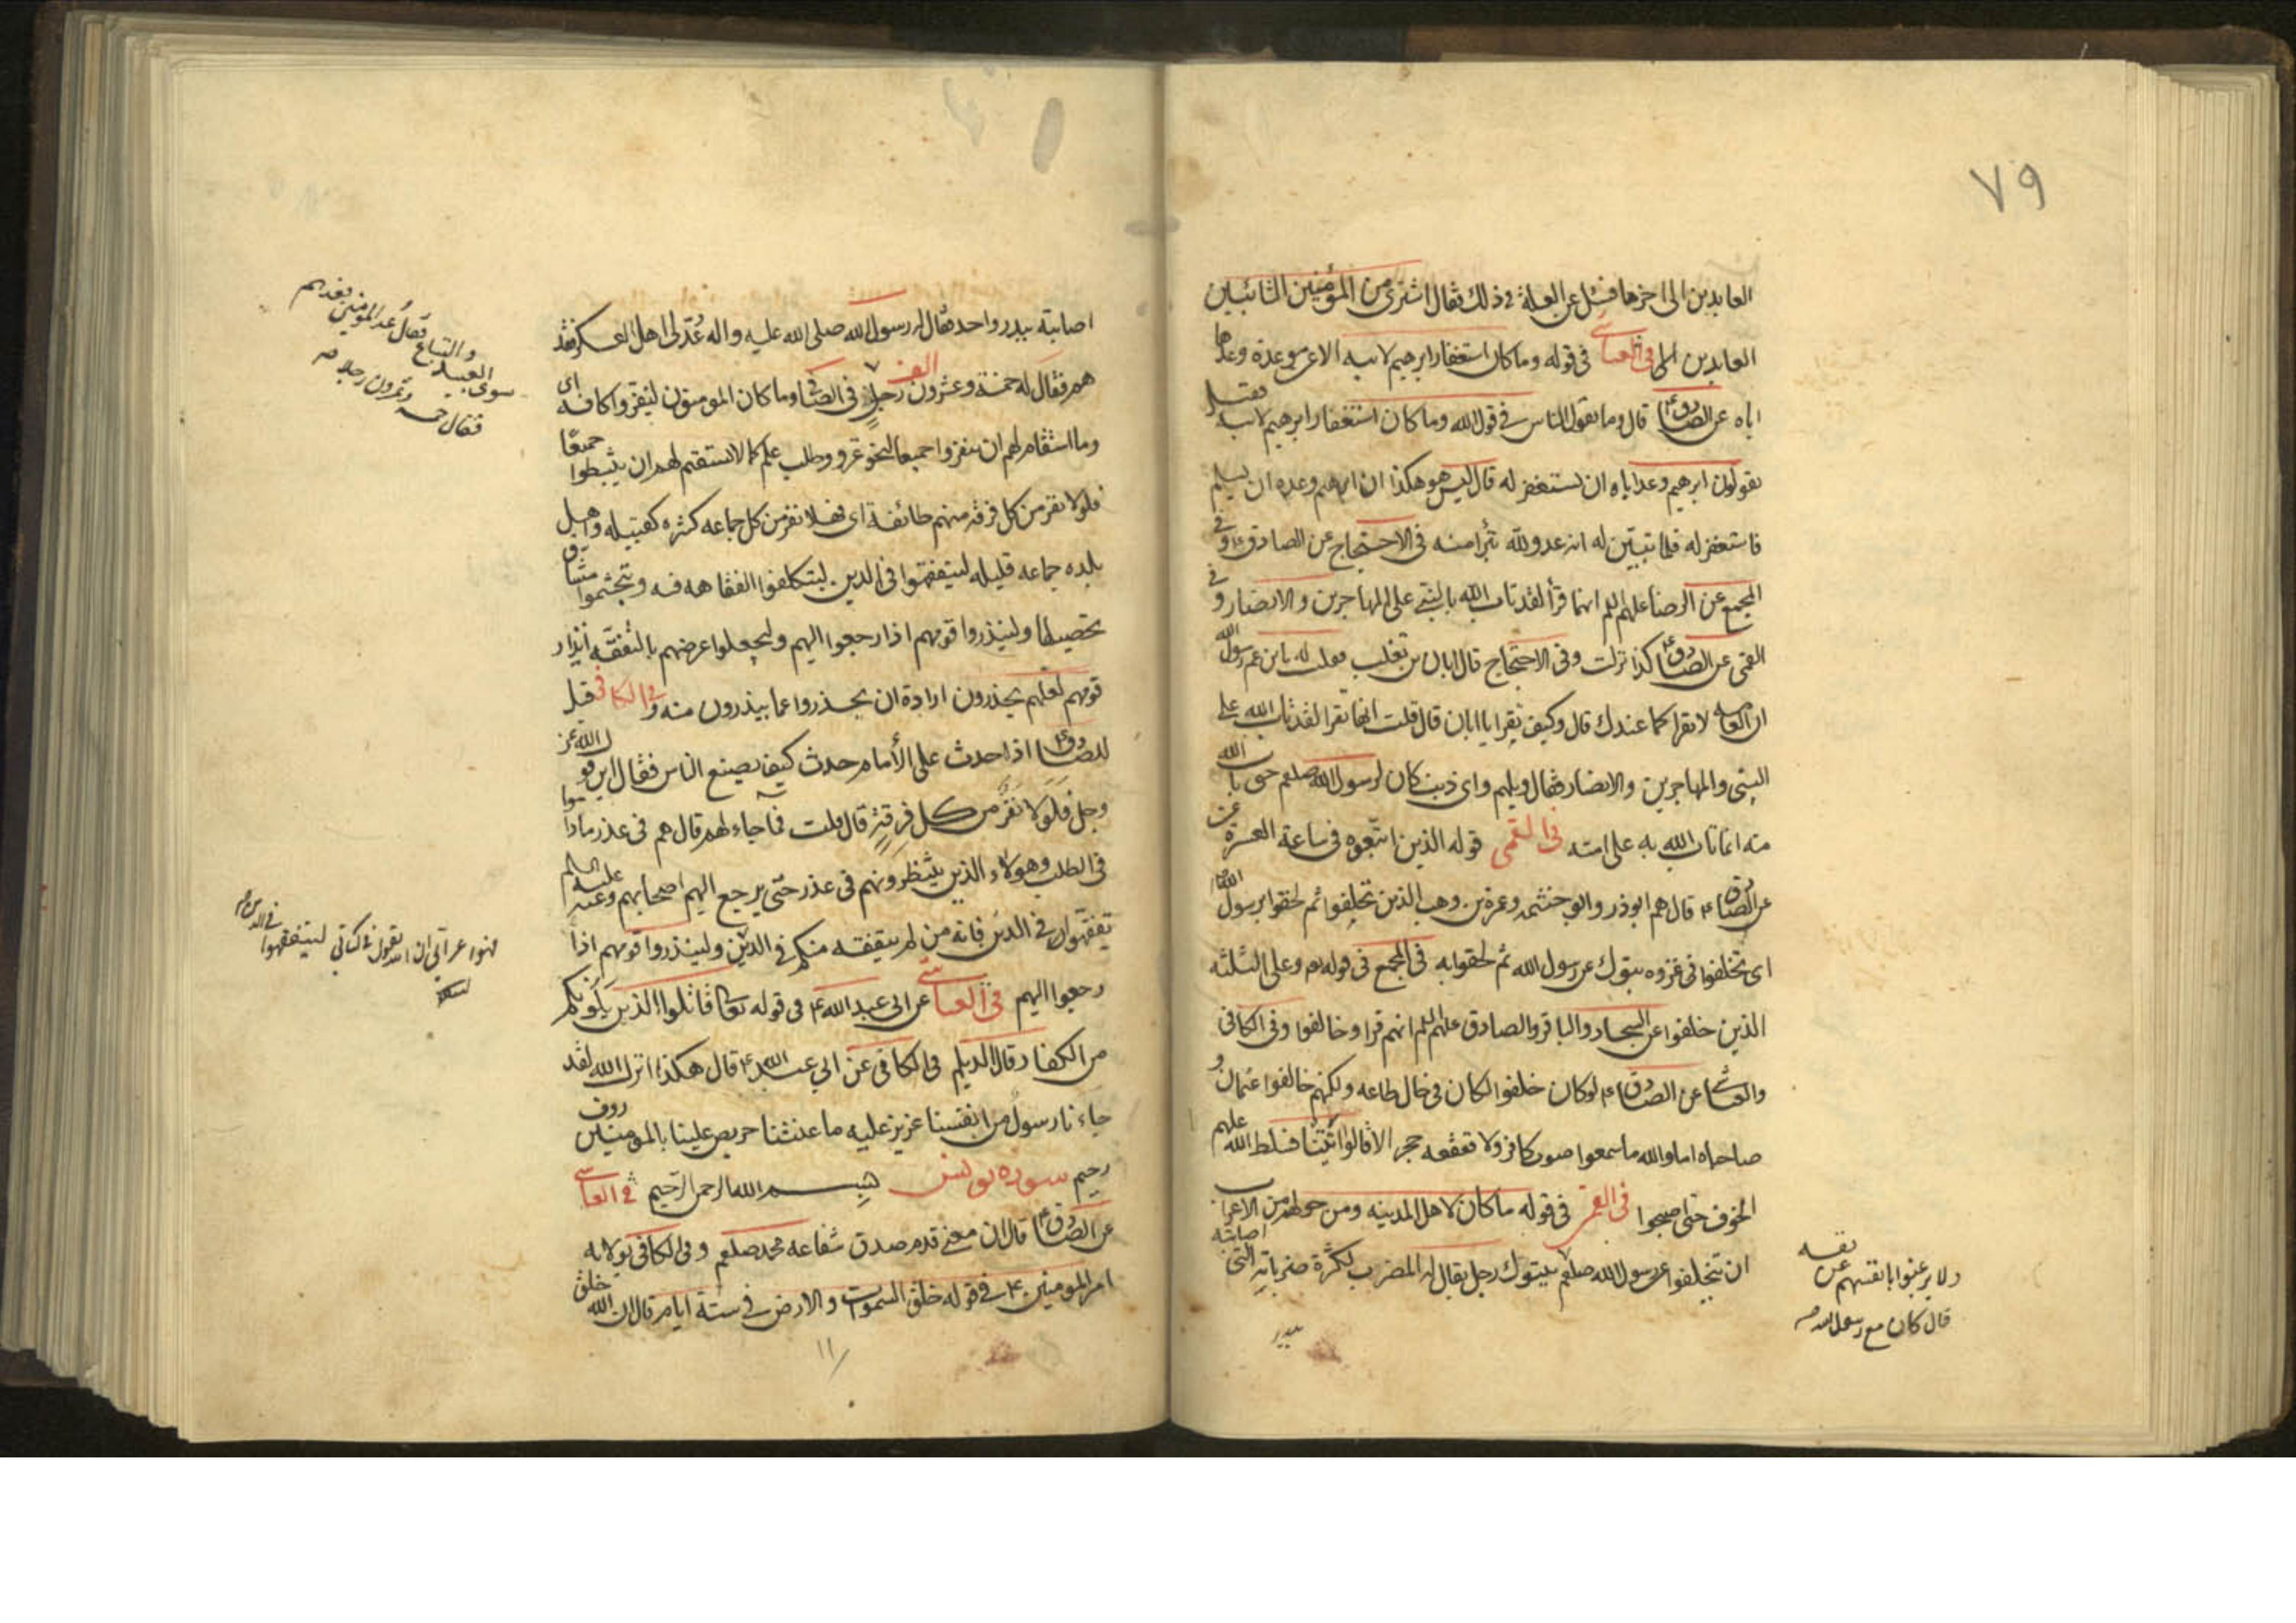 ٧٩
العابدين الى اخرها فسئل عن العلة في ذلك فقال اشترى من المؤمنين التائبين
العابدين الخ في العياشي في قوله وما كان استغفار ابرهيم لابيه الا عن موعدة وعدها
اياه عن الصادق ع قال وما يقول الناس في قول الله وما كان استغفار ابرهيم لابيه فقيل
يقولون ابرهيم وعد اباه ان يستغفر له قال ليس هو هكذا ان ابرهيم وعده ان يسلم
فاستغفر له فلما تبين له انه عدو لله تبرأ منه في الاحتجاج عن الصادق ع و في
المجمع عن الرضا عليهم السلم انهما قرأ لقد تاب الله بالنبي على المهاجرين والانصار و في
القمى عن الصادق ع كذا نزلت وفى الاحتجاج قال ابان بن تغلب فقلت له يابن رسول الله
ان العامه لا تقرا كما عندك قال وكيف تقرا يا ابان قال قلت انها تقرا لقد تاب الله على
النبى والمهاجرين والانصار فقال ويلهم واى ذنب كان لرسول الله صلعم حتى تاب الله
منه انما تاب الله به على امته في القمى قوله الذين اتبعوه فى ساعة العسرة عن
الصادق ع قال هم ابوذر وابو خثيمه وعمرة بن وهب الذين تخلفوا ثم لحقوا برسول الله
اى تخلفوا فى غزوه تبوك عن رسول الله ثم لحقوا به في المجمع فى قوله وعلى الثلثه
الذين خلفوا عن السجاد والباقر والصادق عليهم السلم انهم قرا وخالفوا وفى الكافى
والعياشى عن الصادق ع لو كان خلفوا لكان فى حال طاعه ولكنهم خالفوا عثمان و
صاحباه اما والله ما سمعوا صوت كافر ولا قعقعه حجر الا قالوا اتينا فسلط الله عليهم
الخوف حتى اصبحوا فى القمى فى قوله ما كان لاهل المدينه ومن حولهم من الاعراب
ان يتخلفوا عن رسول الله صلعم بتبوك رجل يقال له المضرب لكثرة ضرباته التى اصابته
ولا يرغبوا بانفسهم عن نفسه
قال كان مع رسول الله ص
ببدر
اصابته ببدر واحد فقال له رسول الله صلى الله عليه واله عُدّ لى اهل العسكر فعد
هم فقال له خمسة وعشرون الف رجل في الصافى وما كان المومنون لينفروا كافه اى
وما استقام لهم ان ينفروا جميعا لنحو غزو وطلب علم كما لا يستقيم لهم ان يثبطوا جميعًا
فلولا نفر من كل فرقه منهم طائفة اى فهلا نفر من كل جماعه كثره كقبيله واهل
بلده جماعه قليله ليتفقهوا فى الدين ليتكلفوا الفقاهه فيه ويتجشموا مشاق
تحصيلها ولينذروا قومهم اذا رجعوا اليهم وليجعلوا غرضهم بالتفقه انذار
قومهم لعلهم يحذرون ارادة ان يحذروا عما ينذرون منه و في الكافى قيل
للصادق ع اذا حدث على الأمام حدث كيف يصنع الناس فقال اين قول الله عز
وجل فلولا نفر من كل فرقةٍ قال قلت فما جاء لهم قال هم فى عذر ماداموا
فى الطلب وهولاء الذين ينتظرونهم فى عذر حتى يرجع اليهم اصحابهم وعنه عليه السلم
تفقهوا في الدين فانه من لم يتفقه منكم في الدين ولينذروا قومهم اذا
رجعوا اليهم في العياشى عن ابى عبد الله ع فى قوله تعا قاتلوا الذين يلونكم
من الكفار قال الديلم فى الكافى عن ابي عبد الله ع قال هكذا انزل الله لقد
جاءنا رسول من انفسنا عزيز عليه ما عنتنا حريص علينا بالمومنين روف
رحيم سوره يونس بسم الله الرحمن الرحيم في العياشى
عن الصادق ع قال ان معنى قدم صدق شفاعه محمد صلعم وفى الكافى بولايه
امير المومنين ع في قوله خلق السموات والارض في ستة ايام قال ان الله خلق
سوى العبيد والتباع فقال عد المومنين فعدهم
فقال خمسه وعشرون رجلا ص
فهو اعرابي ان الله يقول في كتابى ليتفقهوا في الدين ص
١١